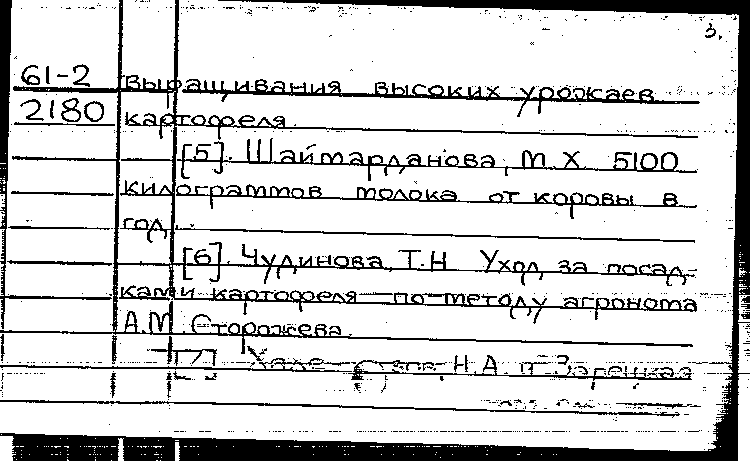 3.
61-2 выращивания высоких урожаев
2180 картофеля.
[5]. Шаймарданова, М.Х. 5100
килограммов молока от коровы в
год.
[6]. Чудинова, Т.Н. Уход за посад-
ками картофеля по методу агронома
А.М. Сторожева.
[7]. Н.А. и Зарецкая